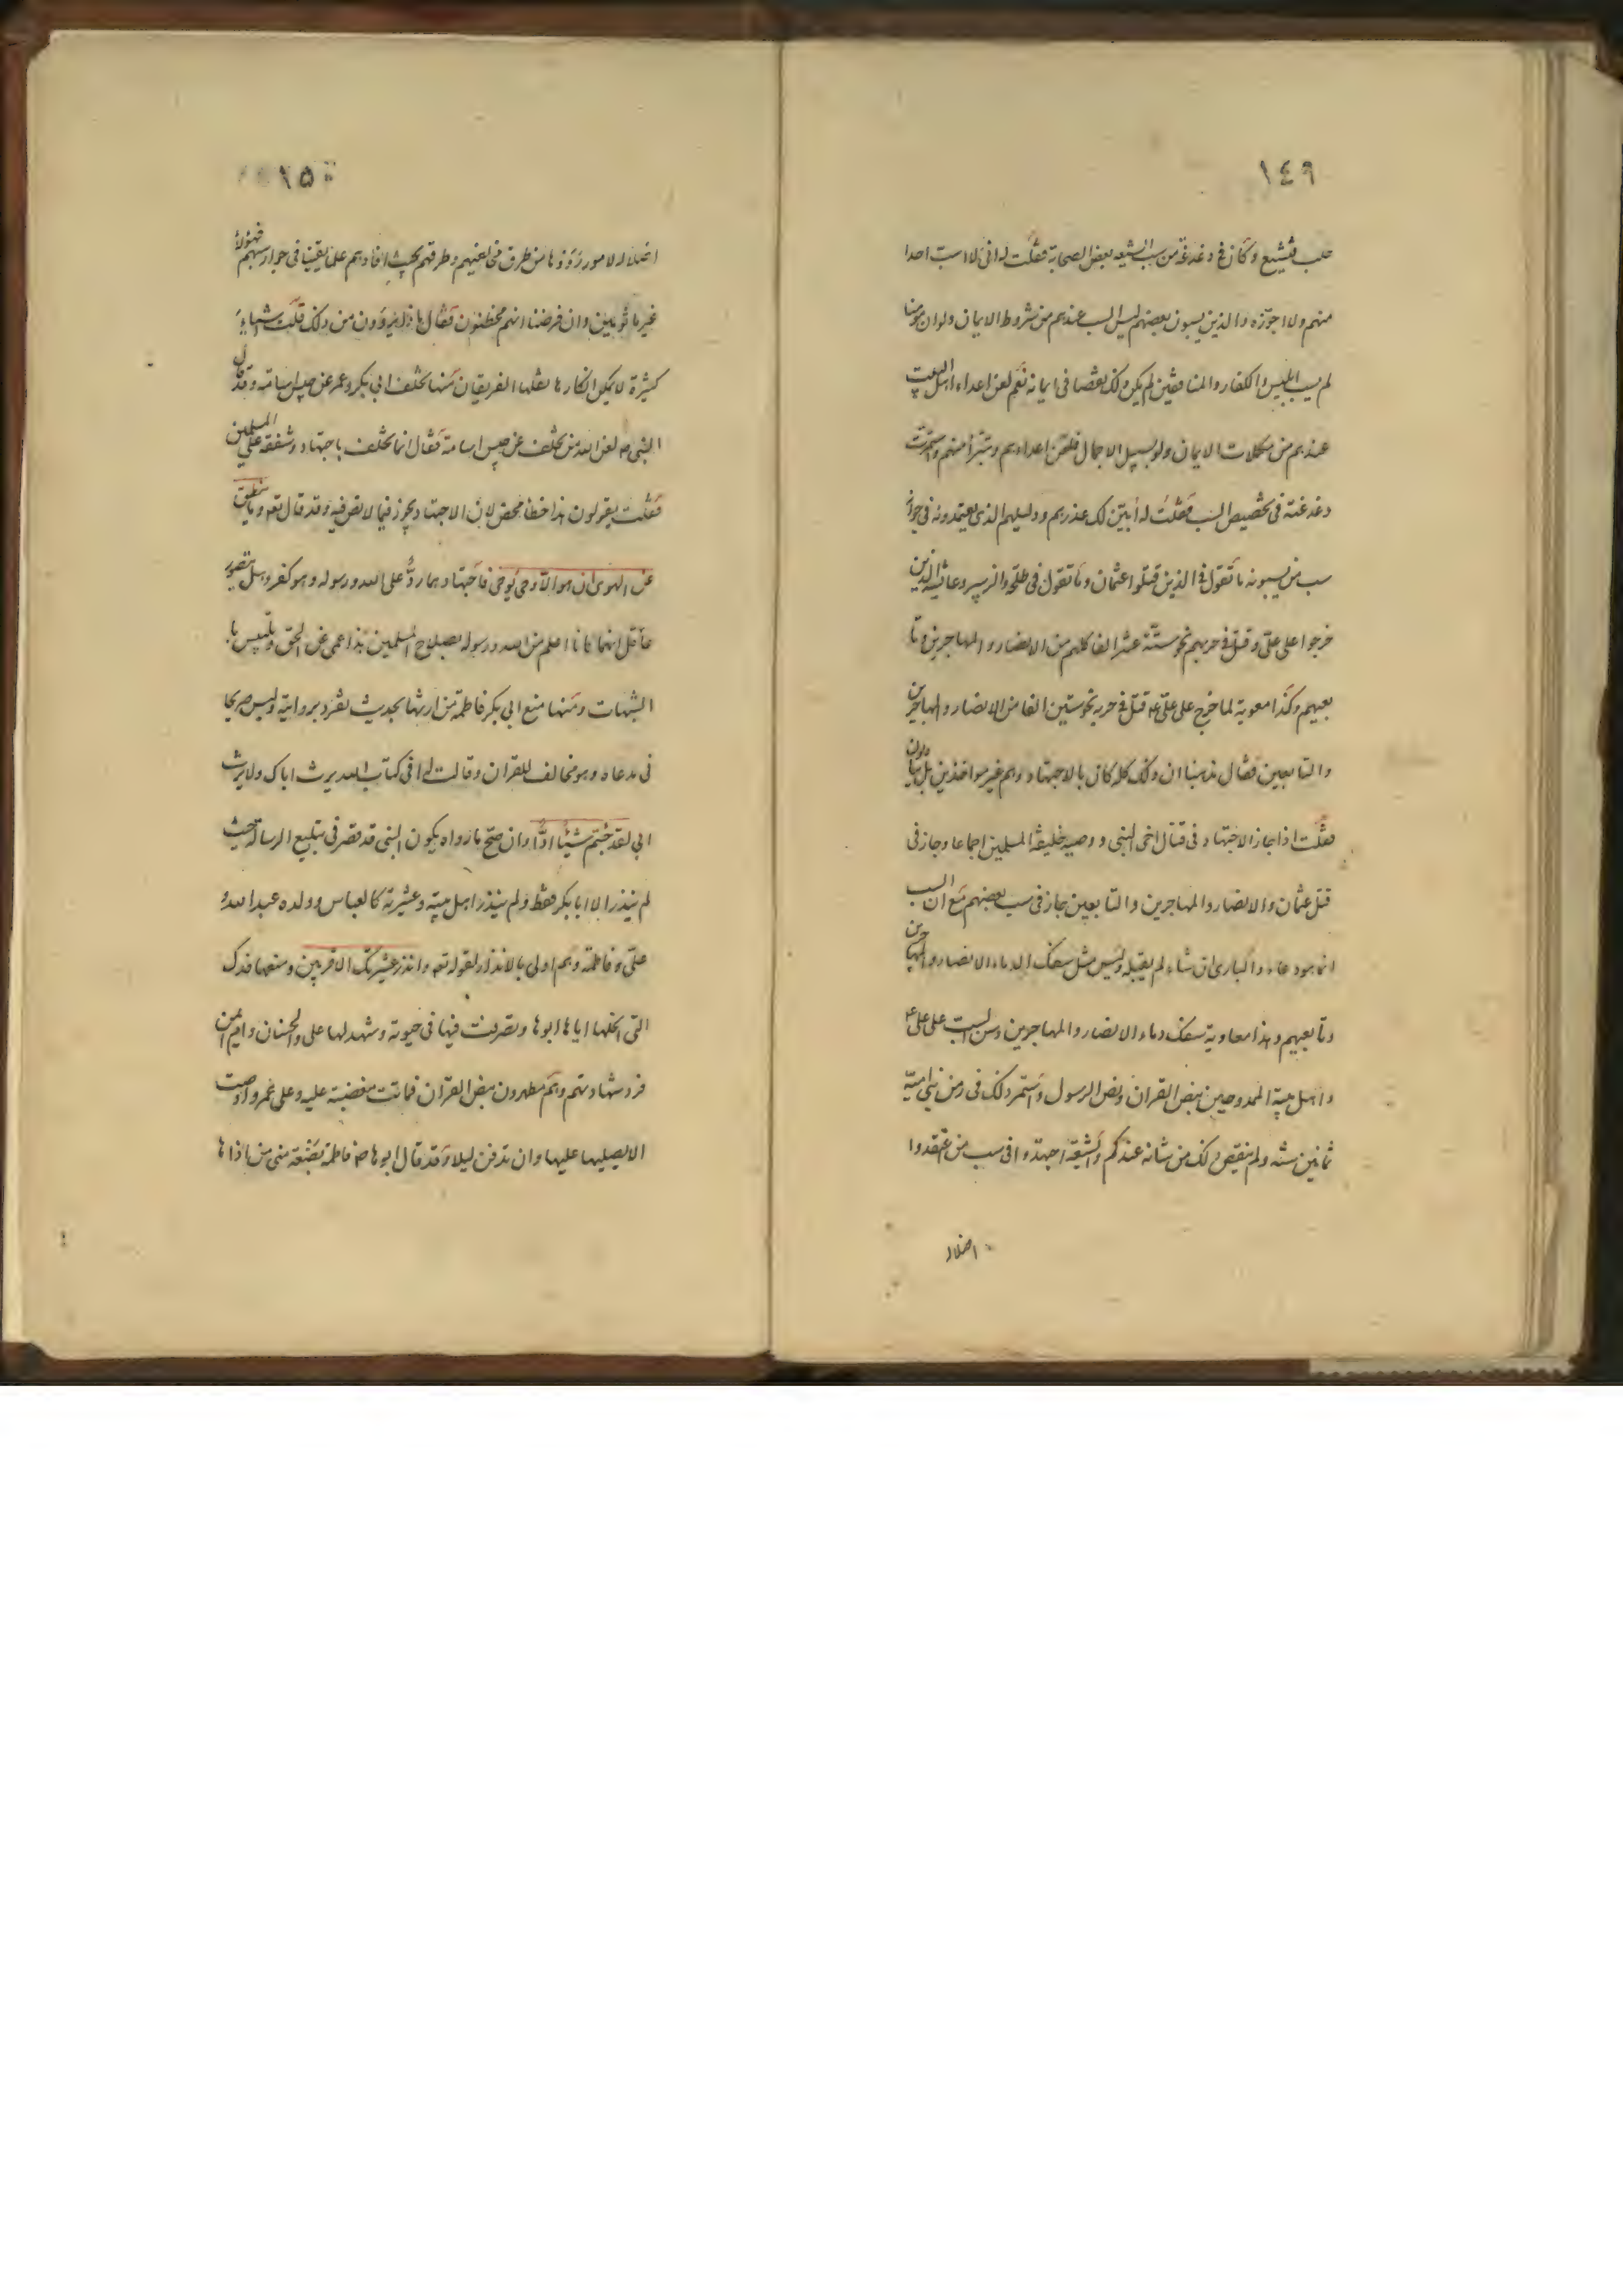 ١٤٩
حلب فتشيع وكان في دغدغة من سب الشيعه بعض الصحابة فقلت له اني لا اسب احدا
منهم ولا اجوّزه والذين يسبون بعضهم ليس السب عندهم من شروط الايمان ولو ان مومنا
لم يسب ابليس والكفار والمنافقين لم يكن ذلك نقصا في ايمانه نعم لعن اعداء اهل البيت
عندهم من مكملات الايمان ولو بسبيل الاجمال فلعن اعداءهم وتبرّأ منهم واستمرت
دغدغته في تخصيص السب فقلت له أبيّن لك عذرهم ودليلهم الذي يعتمدونه في جواز
سب من يسبونه ما تقول في الذين قتلوا عثمان وما تقول في طلحة والزبير وعائشة الذين
خرجوا على عليّ وقتل في حربهم نحو ستّة عشر الفا كلهم من الانصار والمهاجرين وتا
بعيهم وكذا معوية لما خرج على عليّ ع قتل في حربه نحو ستين الفا من الانصار والمهاجرين
والتابعين فقال مذهبنا ان ذلك كله كان بالاجتهاد وهم غير مواخذين بل يثابون
فقلت اذا جاز الاجتهاد في قتال اخى النبى ووصيه خليفة المسلمين اجماعا وجاز في
قتل عثمان والانصار والمهاجرين والتابعين جاز في سب بعضهم مع ان السب
انما هو دعاء والبارئ ان شاء لم يقبله وليس مثل سفك الدماء الانصار والمهاجرين
وتابعيهم وهذا معاوية سفك دماء الانصار والمهاجرين وسن السب على علي ع
واهل بيته الممدوحين بنص القران ونص الرسول واستمر ذلك في زمن بني امية
ثمانين سنه ولم ينقص ذلك من شانه عندكم والشيعة اجتهدوا في سب من اعتقدوا
اضلاله
١٥٠
اضلاله لامور رَوَوْها من طرق مخالفيهم وطرقهم بحيث افادهم علما يقينيا في جواز سبهم فهؤلاء
غير ماثومين وان فرضنا انهم مخطئون فقال ما الذي يروون من ذلك قلت اشياء
كثيرة لا يمكن انكارها نقلها الفريقان منها تخلف ابي بكر وعمر عن جيش اسامة وقد قال
النبى ص لعن الله من تخلف عن جيش اسامة فقال انما تخلف باجتهاد وشفقة على المسلمين
فقلت يقولون هذا خطأ محض لان الاجتهاد يجوز فيما لا نص فيه وقد قال تعه وما ينطق
عن الهوى ان هو الّا وحى يوحى فاجتهادهما ردّ على الله ورسوله وهو كفر وهل يتصور
عاقل انهما كانا اعلم من الله ورسوله بصلاح المسلمين هذا عمى عن الحق وتلبيس با
الشبهات ومنها منع ابي بكر فاطمة من ارثها بحديث تفرد بروايته وليس صريحا
فى مدعاه وهو مخالف للقران وقالت له افى كتاب الله يرث اباك ولا يرث
ابي لقد جئتم شيئًا ادًّا وان صحّ ما رواه يكون النبى قد قصر فى تبليغ الرسالة حيث
لم ينذر الا ابا بكر فقط ولم ينذر اهل بيته وعشيرته كالعباس وولده عبد الله و
علىّ وفاطمة وهم اولى بالانذار لقوله تعه وانذر عشيرتك الاقربين ومنعها فدك
التى انحلها اياها ابوها وتصرفت فيها فى حيوته وشهد لها على والحسنان وام ايمن
فرد شهادتهم وهم مطهرون بنص القران فماتت مغضبة عليه وعلى عمر واوصت
الا يصليا عليها وان تدفن ليلا وقد قال ابوها ص فاطمة بَضْعة منى من اذاها